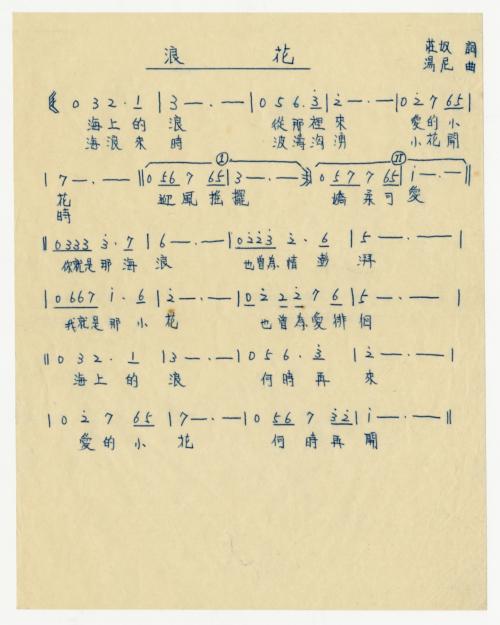 浪 花
莊奴 詞
湯尼 曲
0 3 2 · 1 | 3 — · — | 0 5 6 · 3̇ | 2̇ — · — | 0 2̇ 7 6 5 |
海上的 浪 從那裡來 愛的小
海浪來 時 波濤洶湧 小花開
| 7 — · — || 0 5 6 7 6 5 | 3 — · — :|| 0 5 7 7 6 5 | 1̇ — · — ||
I II
花 迎風搖擺 嬌柔可愛
時
|| 0 3 3 3 3̇ · 7 | 6 — · — | 0 2̇ 2̇ 3̇ 2̇ · 6 | 5 — · — |
你就是那海浪 也曾為情澎湃
| 0 6 6 7 1̇ · 6 | 2̇ — · — | 0 2̇ 2̇ 2̇ 7 6 | 5 — · — |
我就是那小花 也曾為愛徘徊
|| 0 3 2 · 1 | 3 — · — | 0 5 6 · 3̇ | 2̇ — · — |
海上的浪 何時再來
| 0 2̇ 7 6 5 | 7 — · — | 0 5 6 7 3̇ 2̇ | 1̇ — · — ||
愛的小花 何時再開